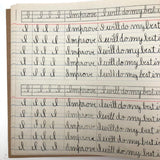 I I I I Improve. I will do my best
I I I I Improve. I will do my best
I I I I Improve. I will do my best in
I I I I Improve. I will do my best in
I I I I Improve. I will do my best in
I I I I Improve. I will do my best in
I I I I Improve. I will do my best in
I I I I Improve. I will do my best in
I I I I Improve. I will do my best in
I I I I Improve. I will do my best in